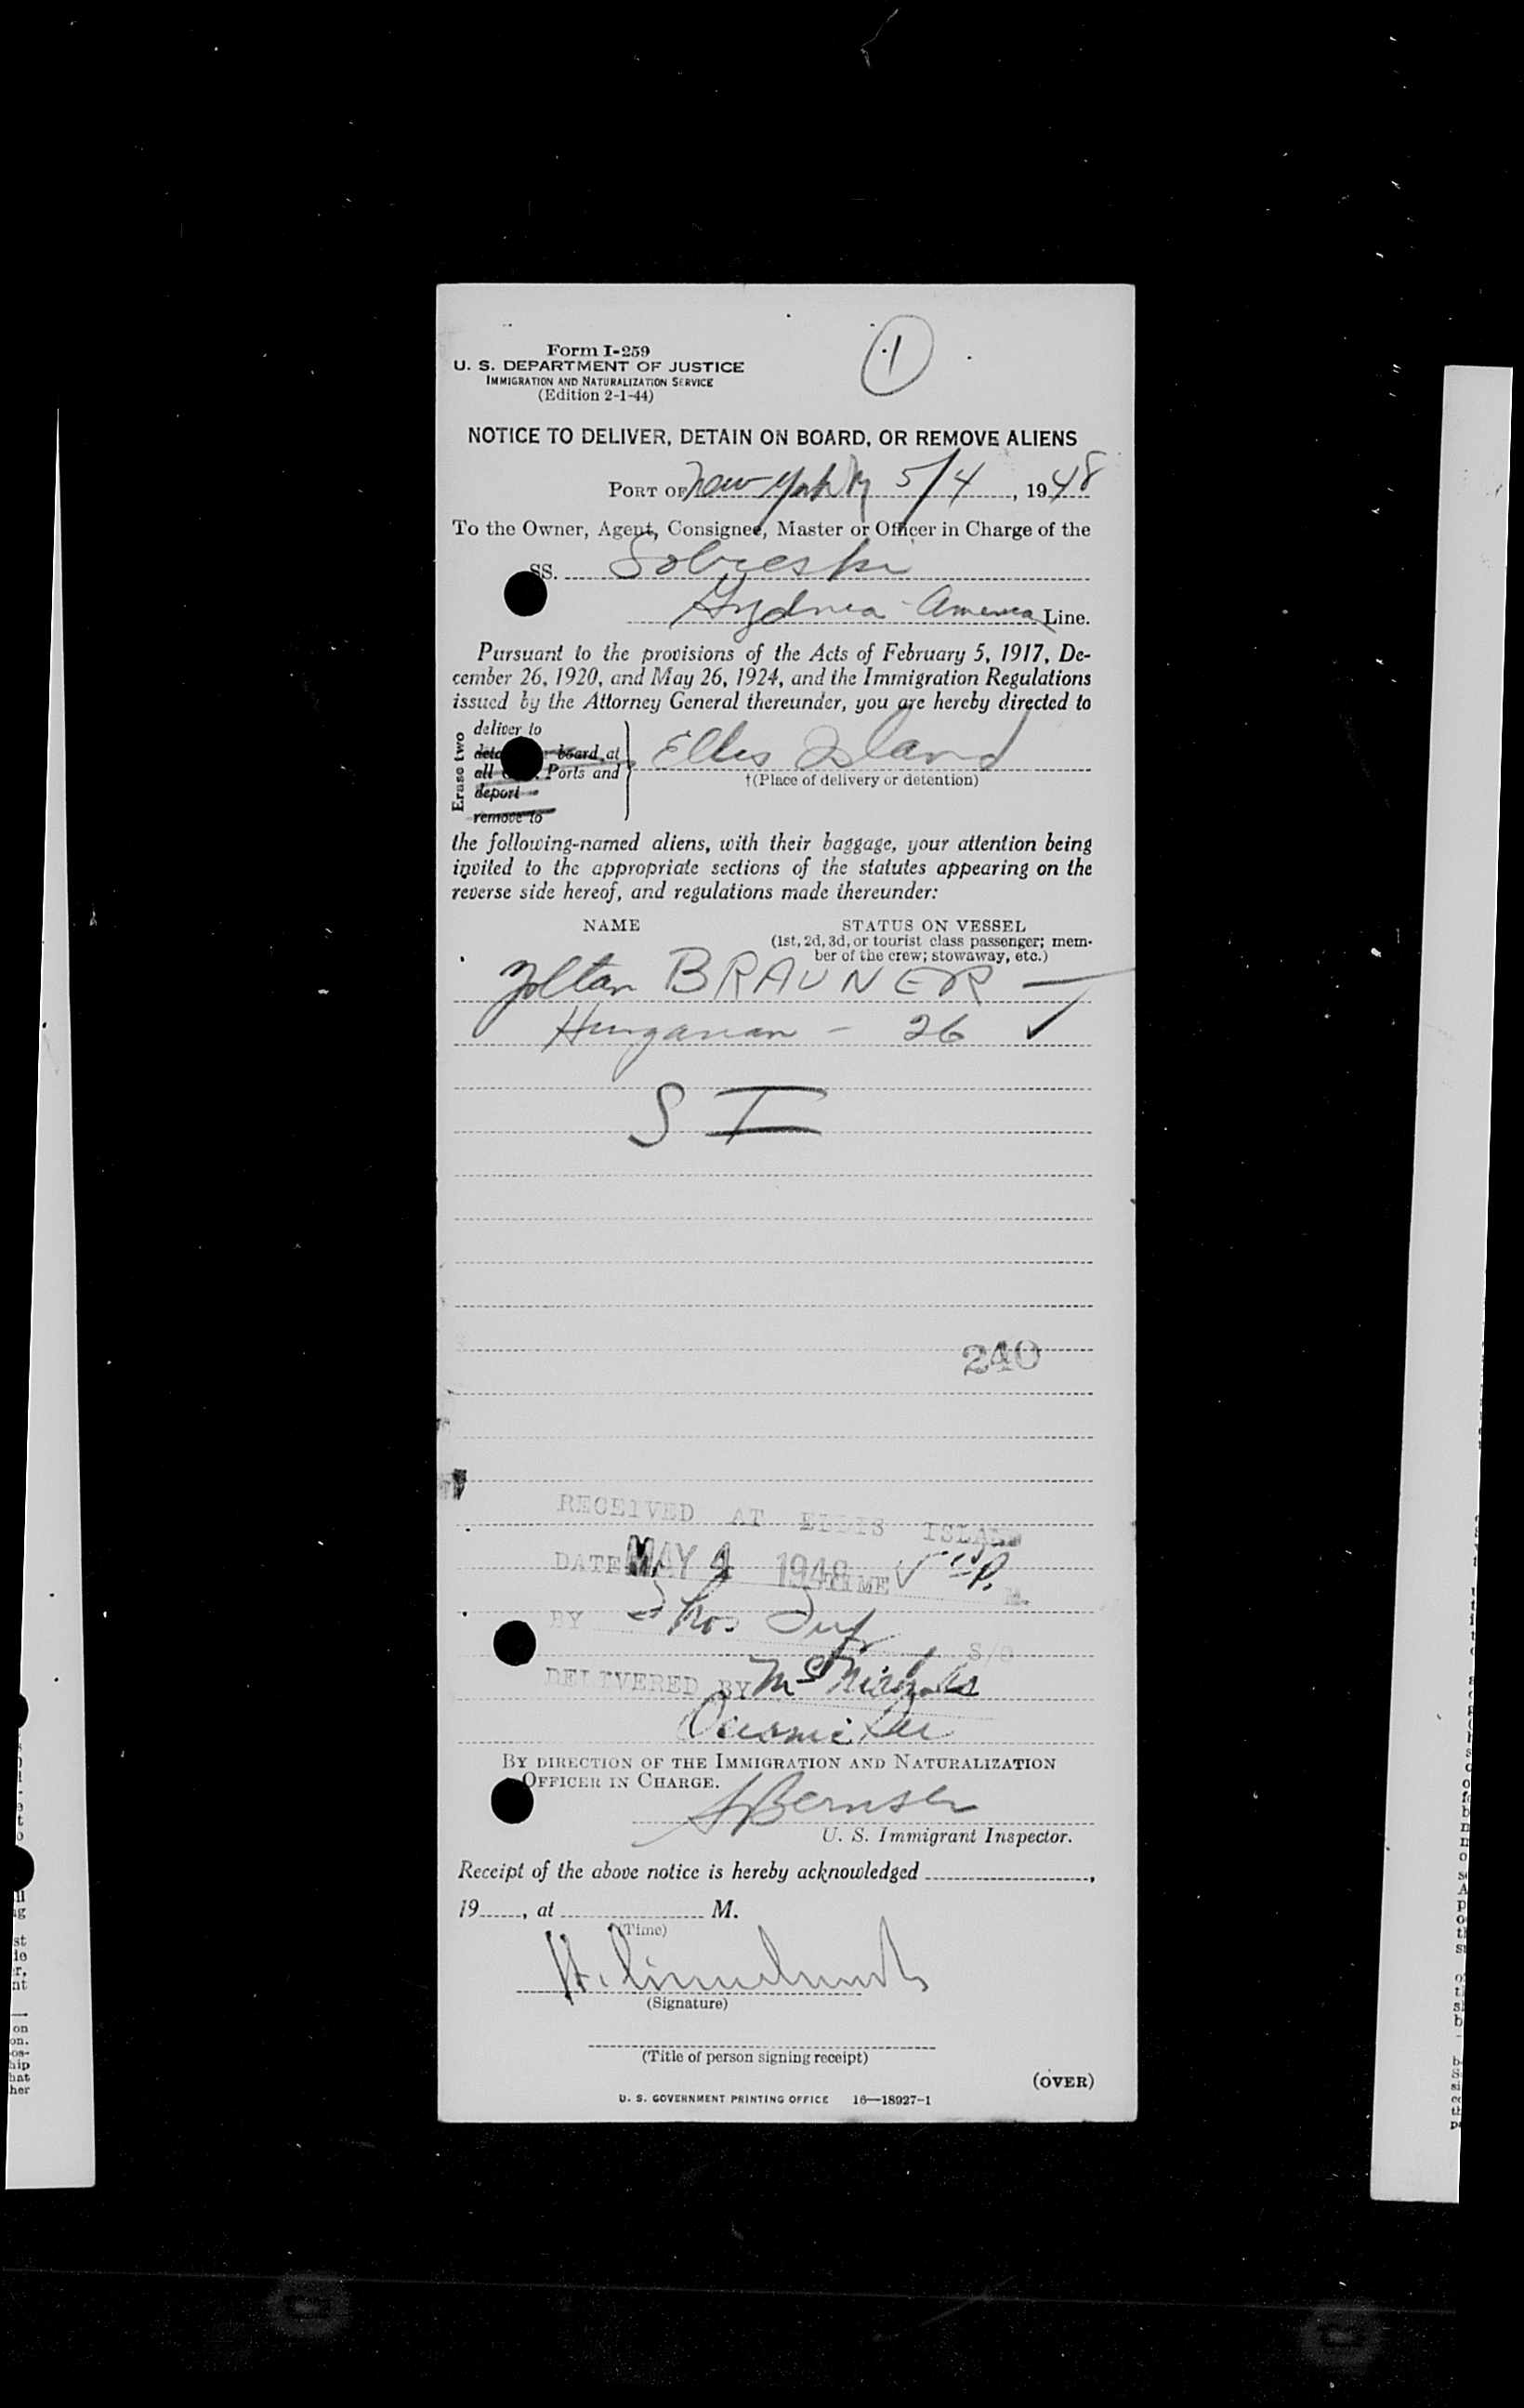 1
Form I-259
U. S. DEPARTMENT OF JUSTICE
IMMIGRATION AND NATURALIZATION SERVICE
(Edition 2-1-44)
NOTICE TO DELIVER, DETAIN ON BOARD, OR REMOVE ALIENS
PORT OF New York NY 5/4, 1948
To the Owner, Agent, Consignee, Master or Officer in Charge of the
SS. Sobieski
Gydnia - America Line.
Pursuant to the provisions of the Acts of February 5, 1917, De-
cember 26, 1920, and May 26, 1924, and the Immigration Regulations
issued by the Attorney General thereunder, you are hereby directed to
Erase two
deliver to
board at
all Ports and
deport
remove to
Ellis Island
†(Place of delivery or detention)
the following-named aliens, with their baggage, your attention being
invited to the appropriate sections of the statutes appearing on the
reverse side hereof, and regulations made thereunder:
NAME STATUS ON VESSEL
(1st, 2d, 3d, or tourist class passenger; mem-
ber of the crew; stowaway, etc.)
Zoltan BRAUNER —
Hungarian - 26 ✓
S I
240
RECEIVED AT ELLIS ISLAND
DATE MAY 4 1948 TIME P. M.
BY Thos S/O
DELIVERED BY McNichols
BY DIRECTION OF THE IMMIGRATION AND NATURALIZATION
OFFICER IN CHARGE.
U. S. Immigrant Inspector.
Receipt of the above notice is hereby acknowledged ,
19 , at M.
(Time)
(Signature)
(Title of person signing receipt)
(OVER)
U. S. GOVERNMENT PRINTING OFFICE 16—18927-1